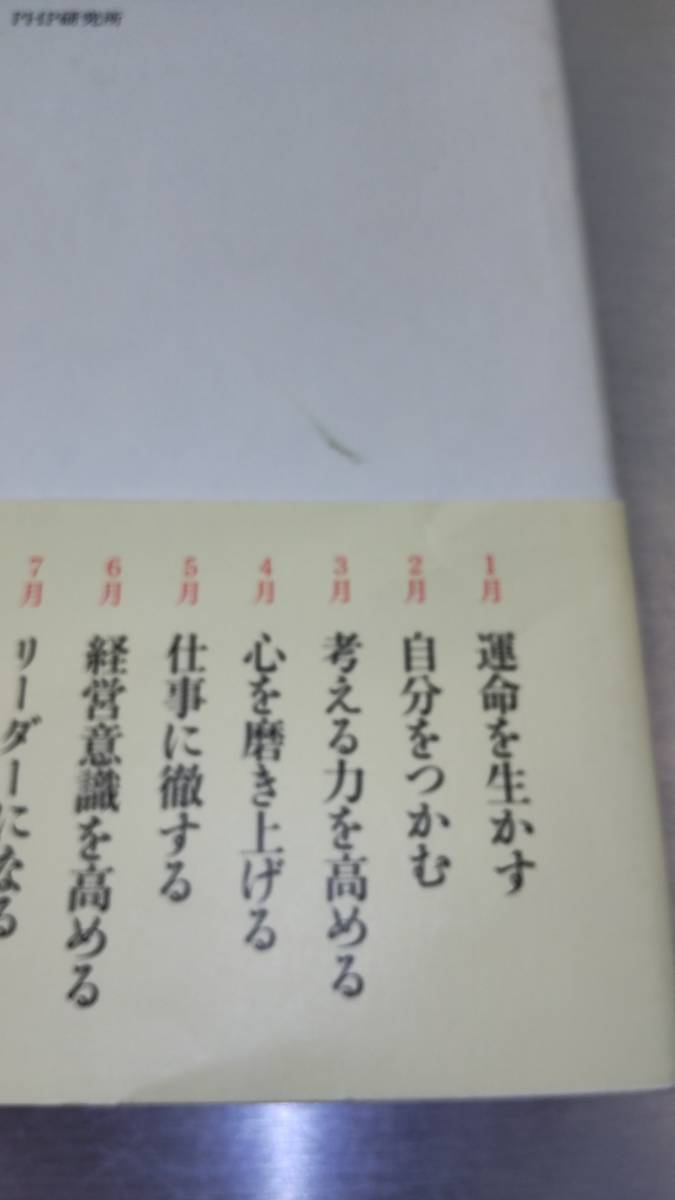 PHP研究所
1月 運命を生かす
2月 自分をつかむ
3月 考える力を高める
4月 心を磨き上げる
5月 仕事に徹する
6月 経営意識を高める
7月 リーダーになる